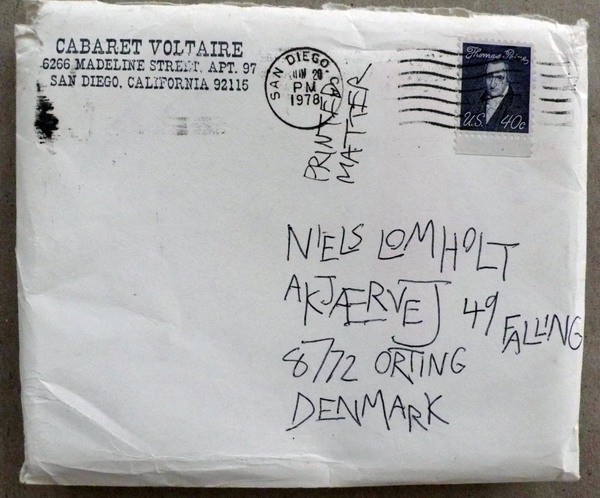 CABARET VOLTAIRE
6266 MADELINE STREET, APT. 97
SAN DIEGO, CALIFORNIA 92115
SAN DIEGO, CA
JUN 20
PM
1978
PRINTED
MATTER
Thomas Paine
U.S. 40c
NIELS LOMHOLT
AKJÆRVEJ 49 FALLING
8772 ORTING
DENMARK